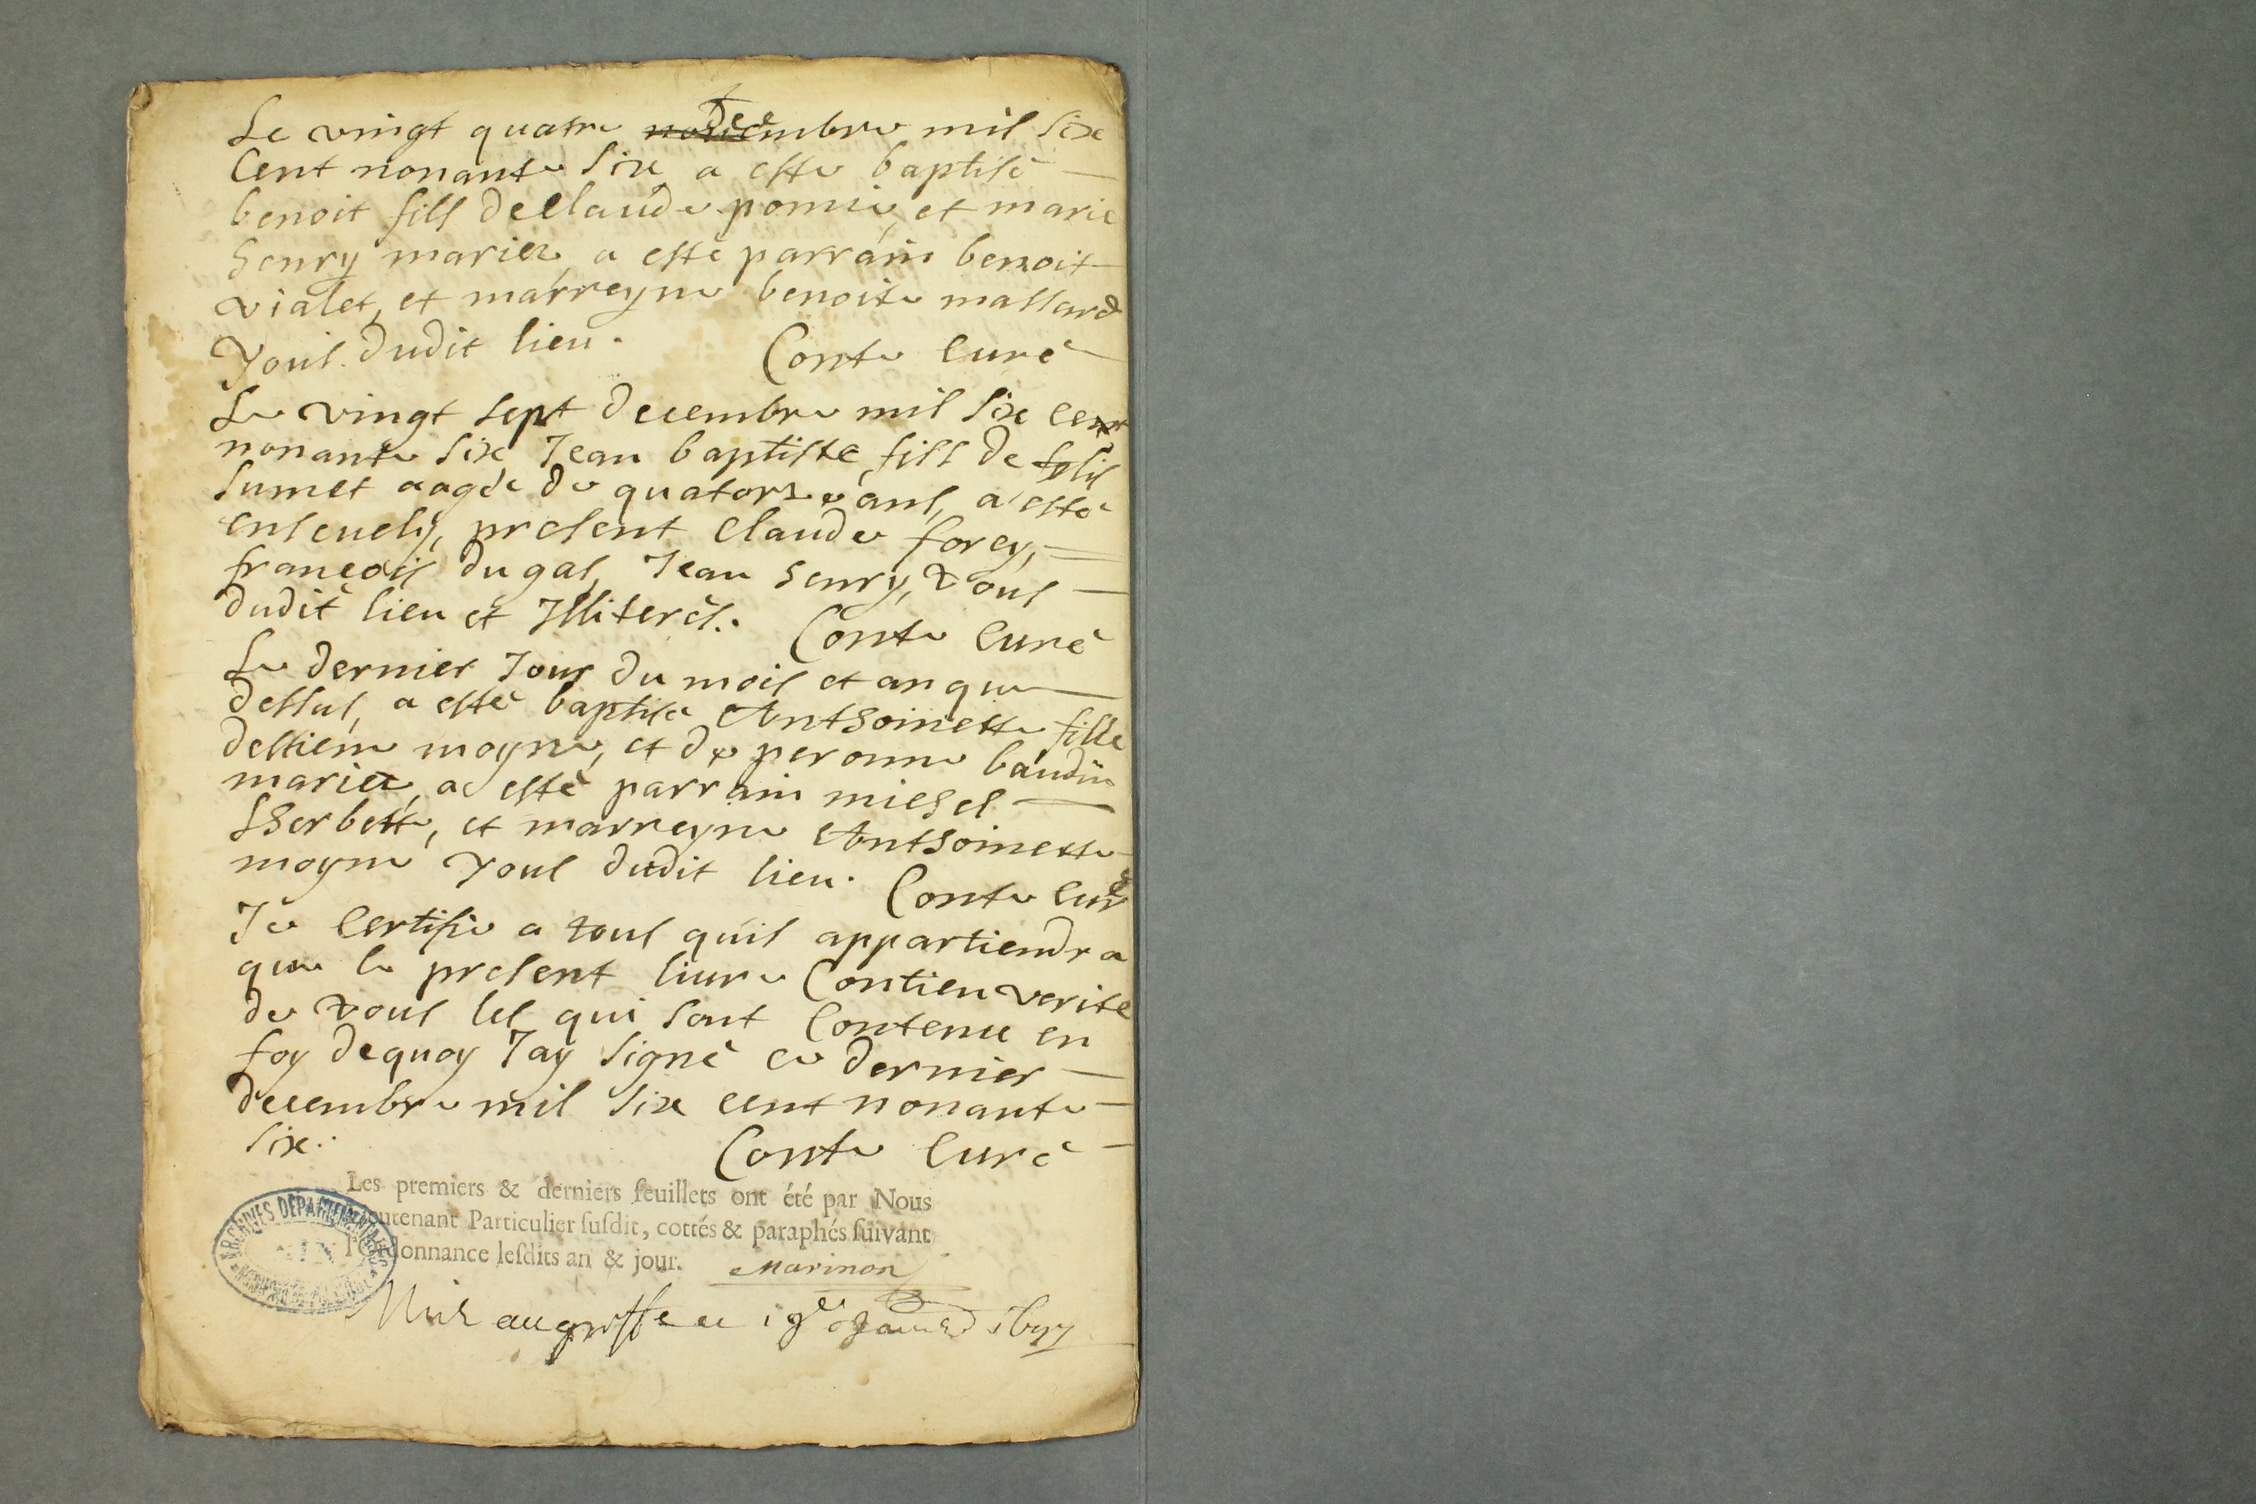 Le vingt quatre novembre Dec mil six
Cent nonante six a este baptisé
benoit fils de Claude pomie, et marie
henry mariez, a esté parrain benoit
vialet, et marreyne benoite mallard
Tous dudit lieu. Conte Curé
Le vingt sept decembre mil six cent
nonante six Jean baptiste fils de felis
sumet aagée de quatorze ans, a esté
ensevely, present Claude forey,
françois dugas, Jean henry, Tous
dudit lieu et Illiterés. Conte Curé
Le dernier Jour du mois et an que
dessus, a esté baptisé Anthoinette fille
destiene moyne, et de peronne baudin
mariez, a esté parrain michel
Lherbette, et marreyne Anthoinette
moyne Tous dudit lieu. Conte Curé
Je Certifie a tous quil appartiendra
que le present livre Contien verité
de tous les qui sont Contenu en
foy dequoy Jay signé ce dernier
decembre mil six cent nonante
six. Conte Curé
Les premiers & derniers feuillets ont été par Nous
Lieutenant Particulier susdit, cottés & paraphés suivant
l'Ordonnance lesdits an & jour. Marinon
ARCHIVES DEPARTEMENTALES
Mis au greffe ce